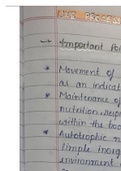 LIFE PROCESS
Important Po
Movement of
as an indicat
Maintenance of
nutrition, Resp
within the bod
Autotrophic n
simple inorg
environment